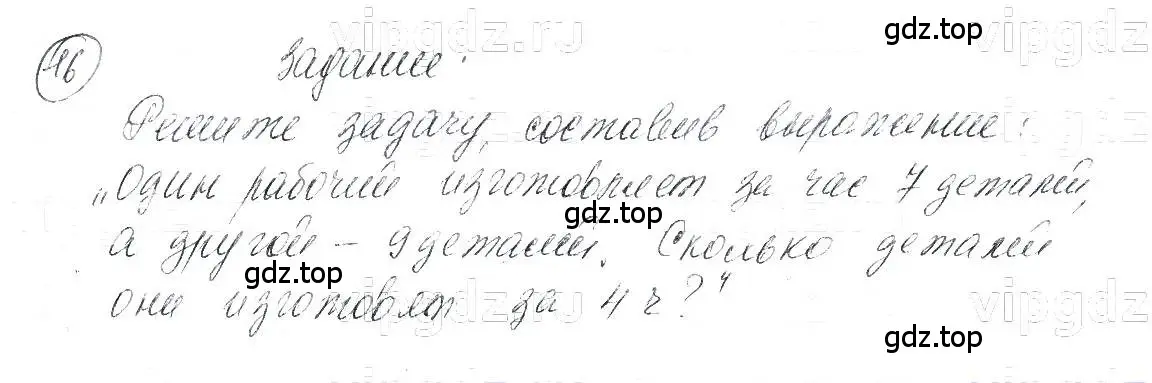 vipgdz.ru
gdz.top
vipgdz
46 Задание:
Решите задачу, составив выражение:
„Один рабочий изготовляет за час 7 деталей,
gdz.top
а другой – 9 деталей. Сколько деталей
gdz.top
они изготовят за 4 ч?“
vipgdz.ru
vipgdz
gdz.top